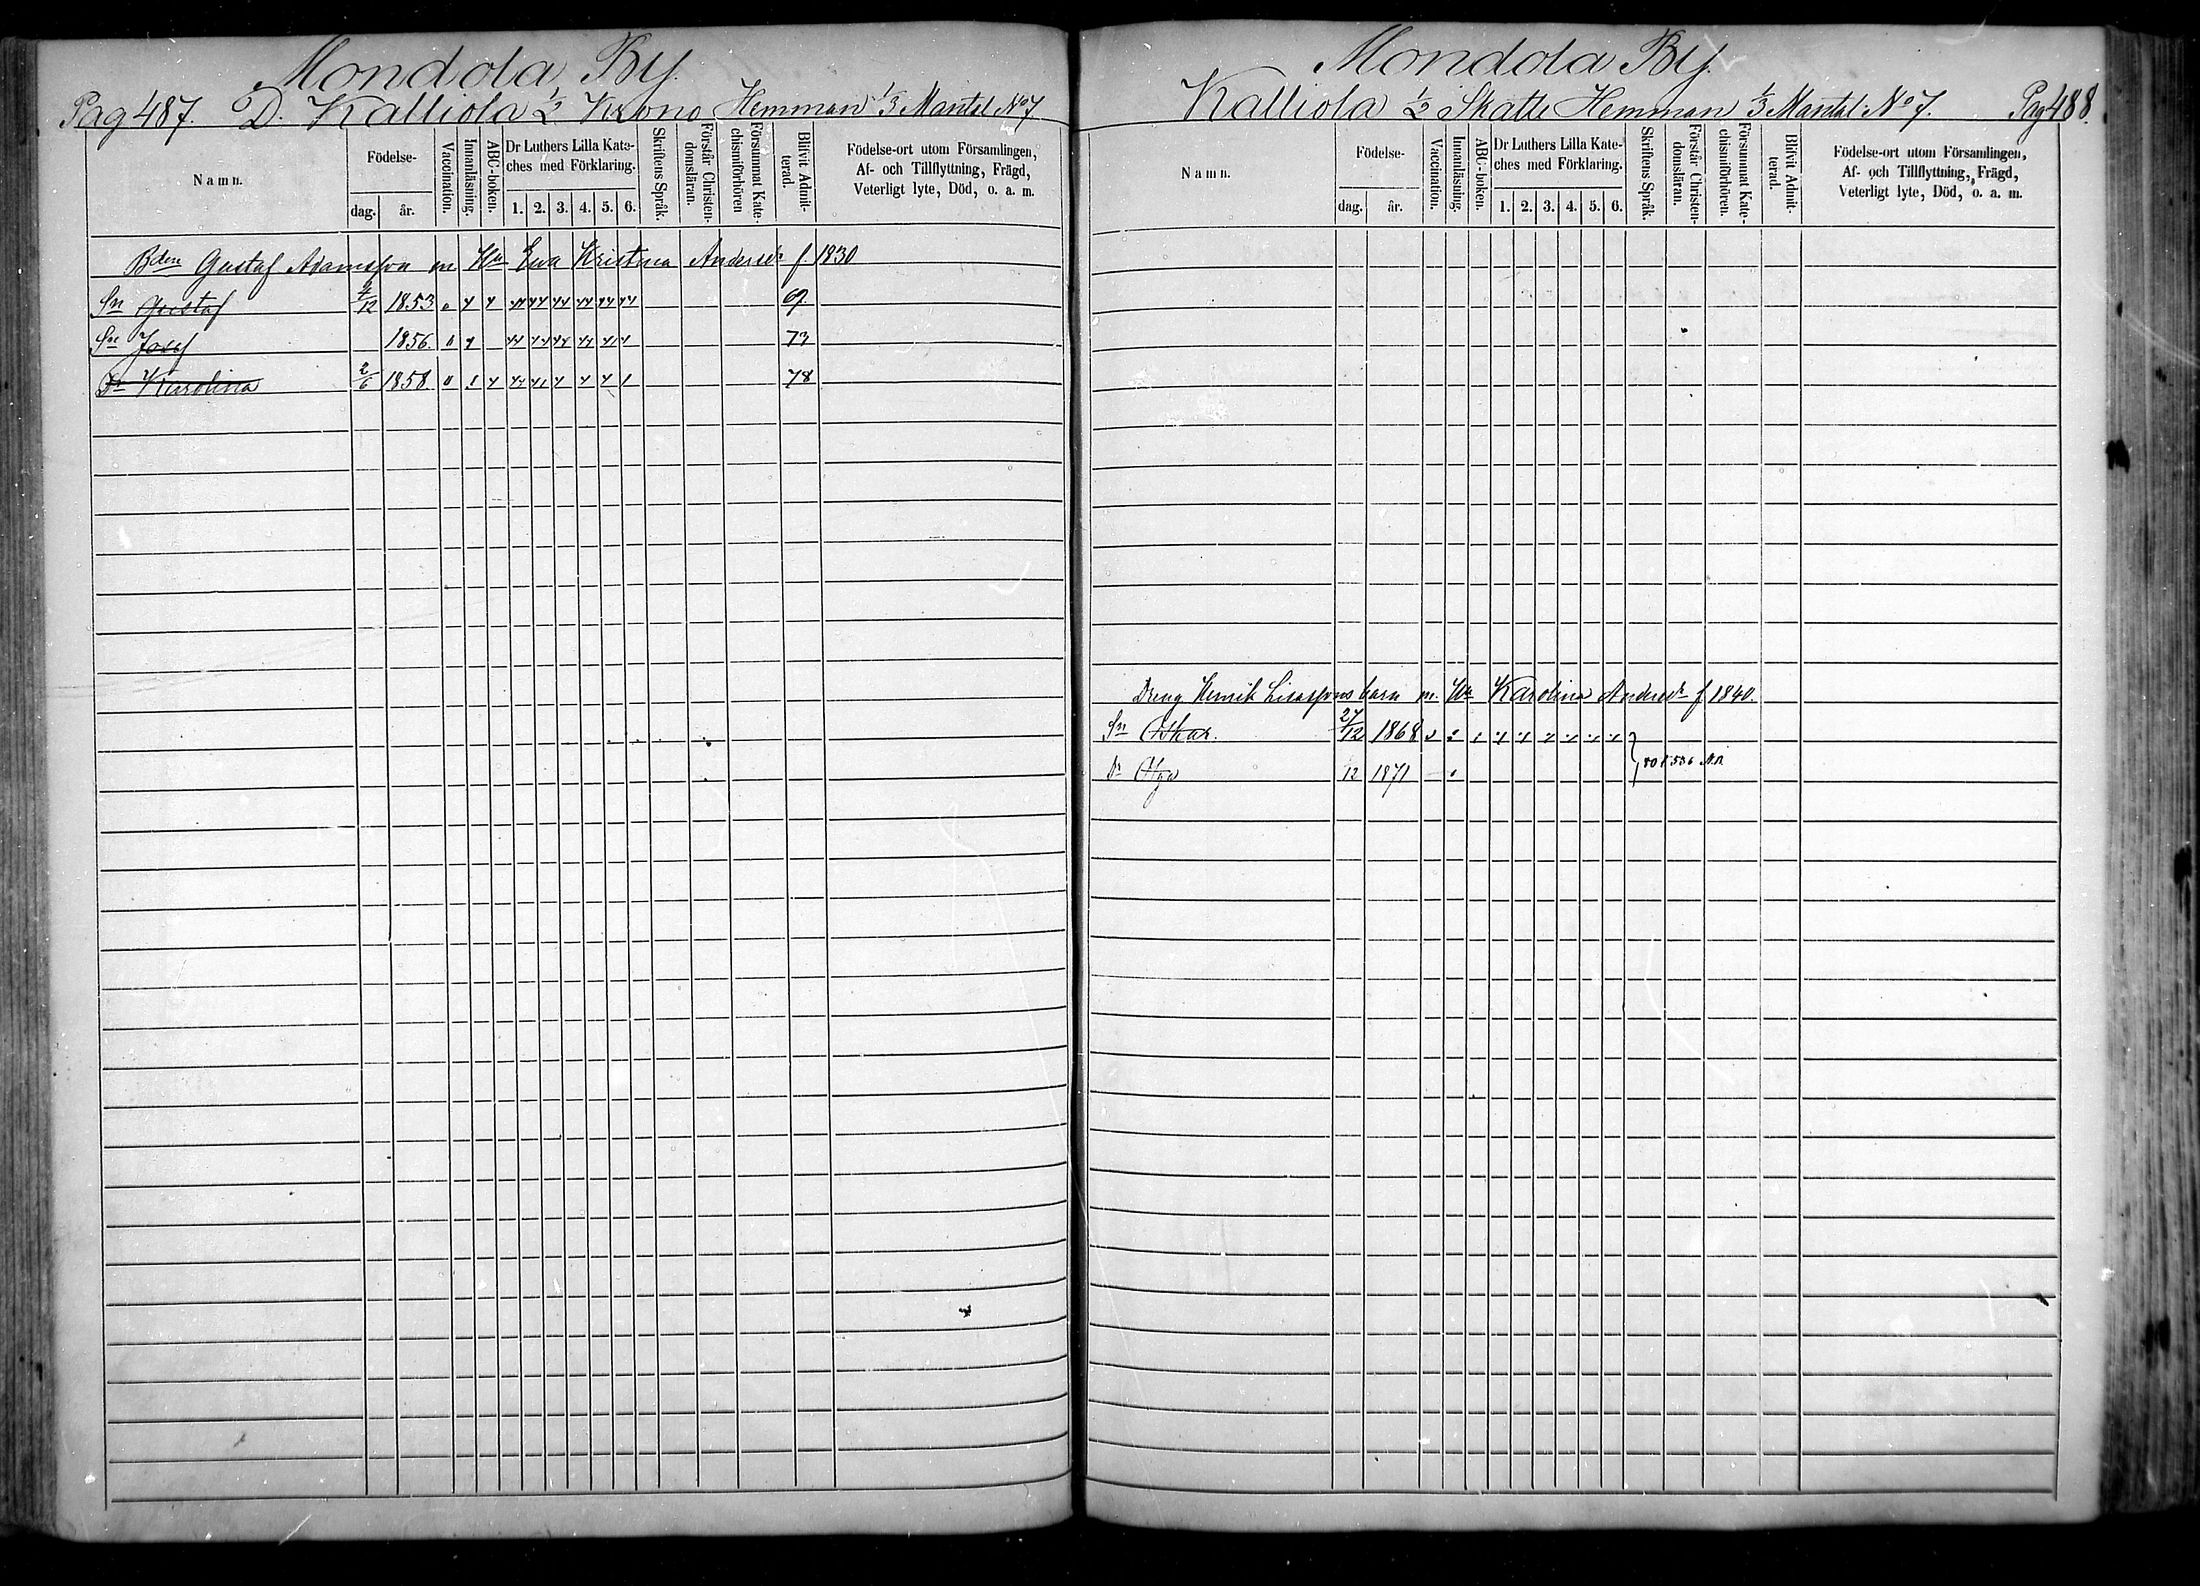 Mondola By.
Pag 487. D. Kalliola ½ Krono Hemman 1/3 Mantal No 7
Namn. Födelse- dag. år. Vaccination. Innanläsning. ABC-boken. Dr Luthers Lilla Kate-ches med Förklaring. 1. 2. 3. 4. 5. 6. Skriftens Språk. Förstår Christen-domsläran. Försummat Kate-chismiförhören Blifvit Admit-terad. Födelse-ort utom Församlingen, Af- och Tillflyttning, Frägd, Veterligt lyte, Död, o. a. m.
Bden Gustaf Adamsson m Hu Ewa Kristina Andersdr f 1830
Sn Gustaf 1853 69
Sn Josef 1856. 73
Dr Karolina 2/6 1858. 78
Mondola By.
Kalliola ½ Skatte Hemman 1/3 Mantal No 7. Pag 488.
Namn. Födelse- dag. år. Vaccination. Innanläsning. ABC-boken. Dr Luthers Lilla Kate-ches med Förklaring. 1. 2. 3. 4. 5. 6. Skriftens Språk. Förstår Christen-domsläran. Försummat Kate-chismiförhören. Blifvit Admit-terad. Födelse-ort utom Församlingen, Af- och Tillflyttning, Frägd, Veterligt lyte, Död, o. a. m.
Dreng Henrik barn m. Hu Karolina Andersdr f 1840.
Sn Oskar. 27/12 1868
Dr Olga 12 1871